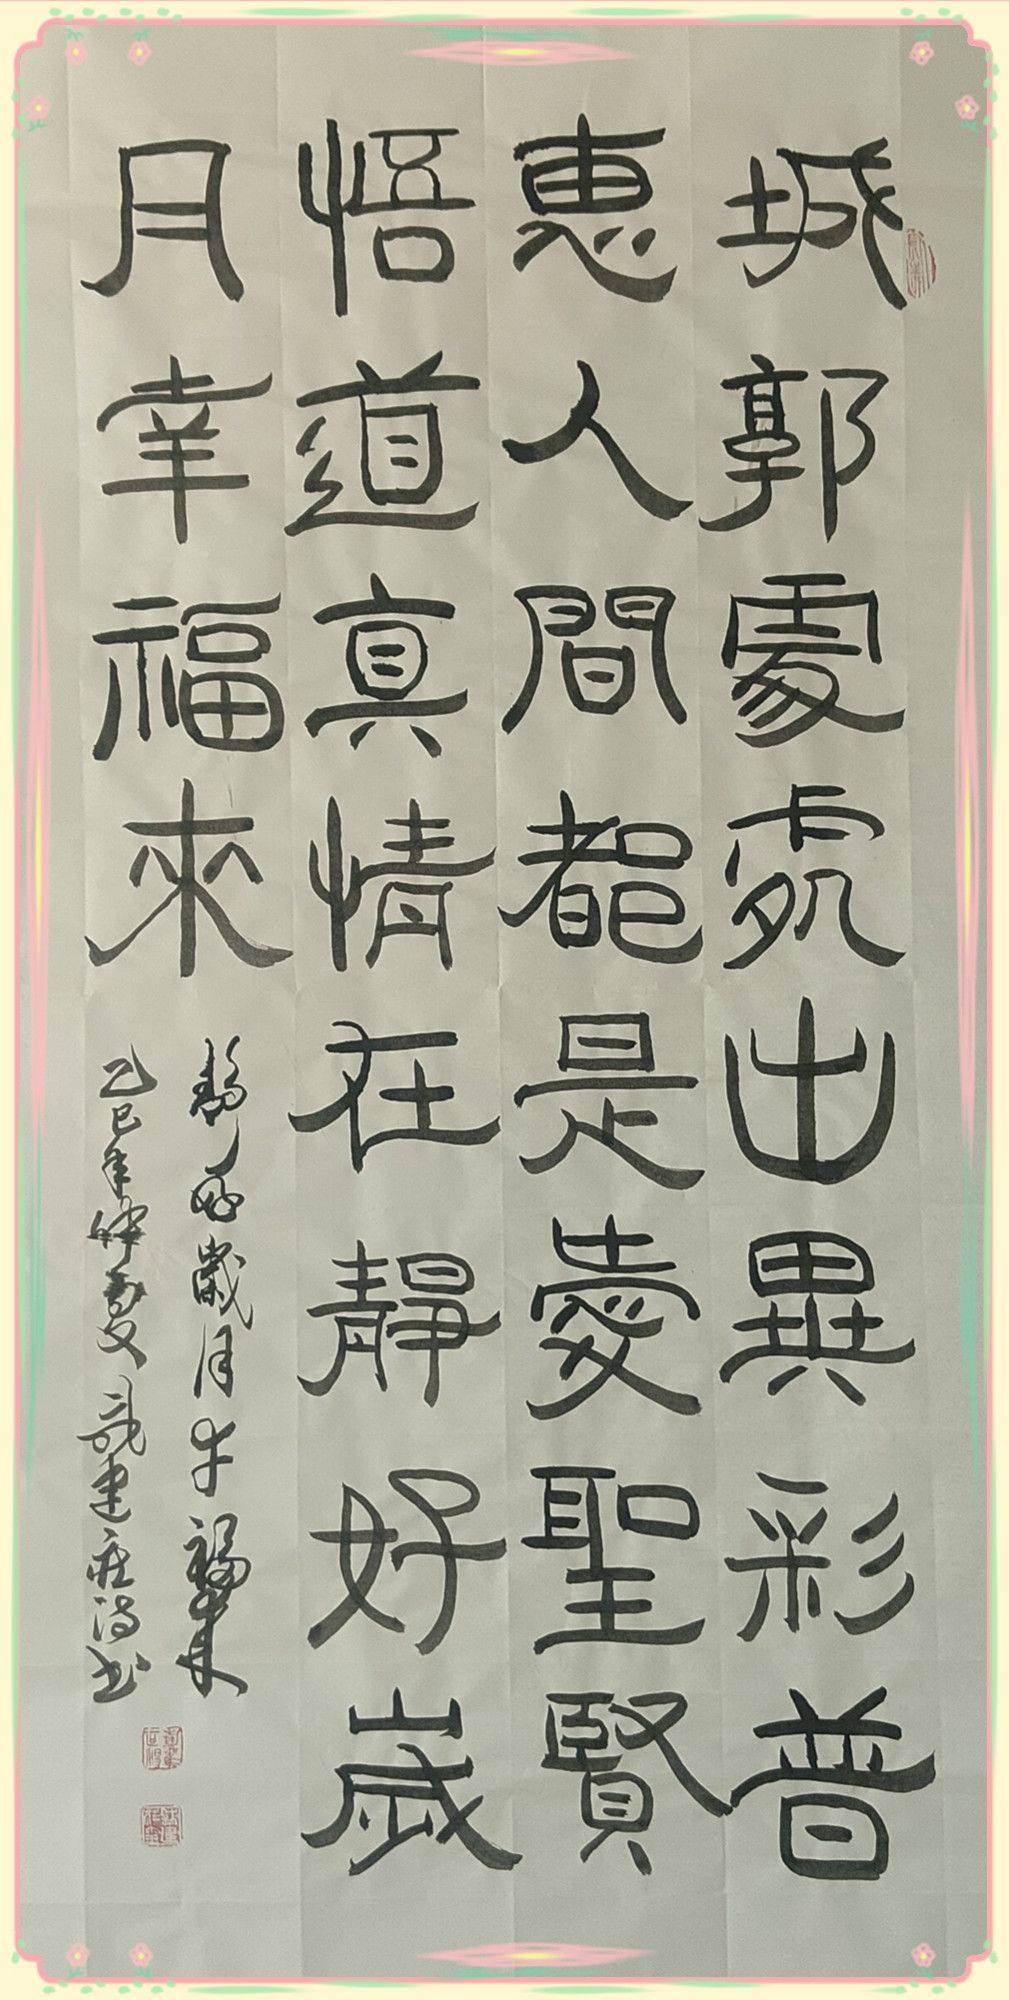 城郭處處出異彩普
惠人間都是愛聖賢
悟道真情在靜好歲
月幸福來
靜好歲月幸福來
乙巳年仲夏武建莊詩書